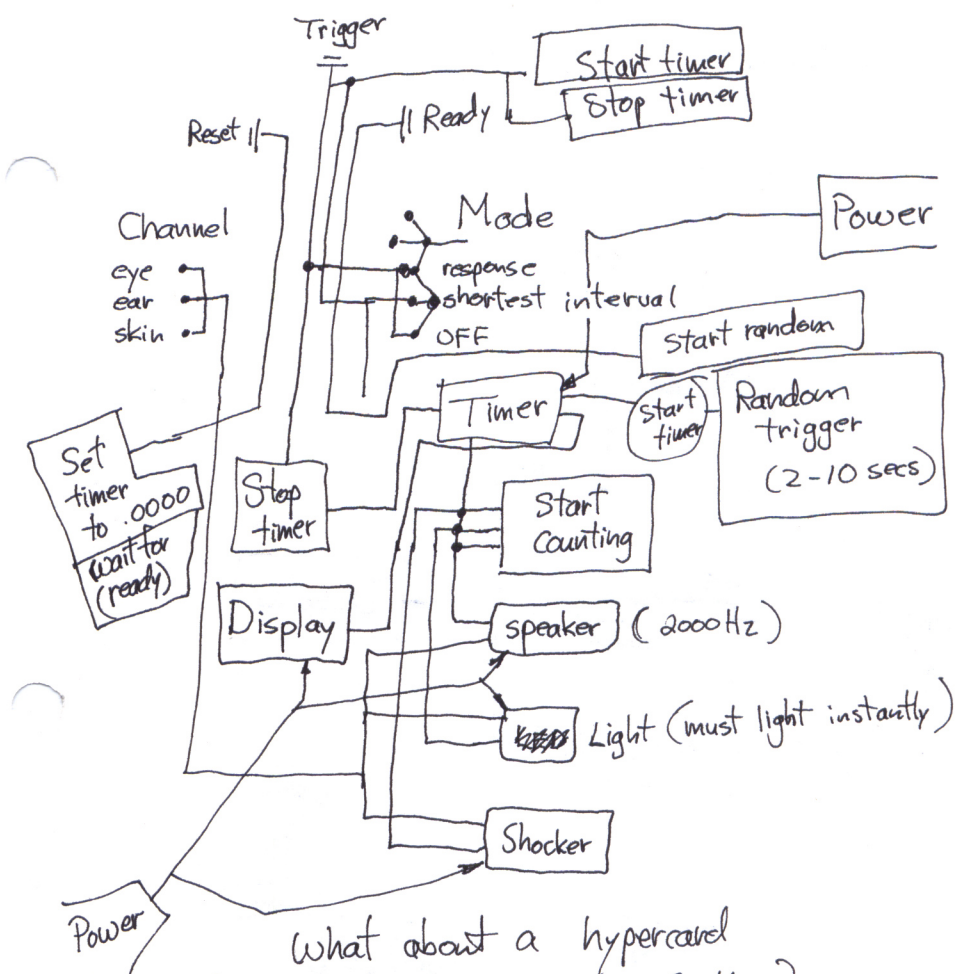 Trigger
Start timer
Stop timer
Ready
Reset
Mode
Power
Channel
eye
ear
skin
response
shortest interval
OFF
Start random
Timer
Start
timer
Random
trigger
(2-10 secs)
Set
timer
to .0000
wait for
(ready)
Stop
timer
Start
Counting
Display
speaker (2000Hz)
Light (must light instantly)
Shocker
Power
What about a hypercard